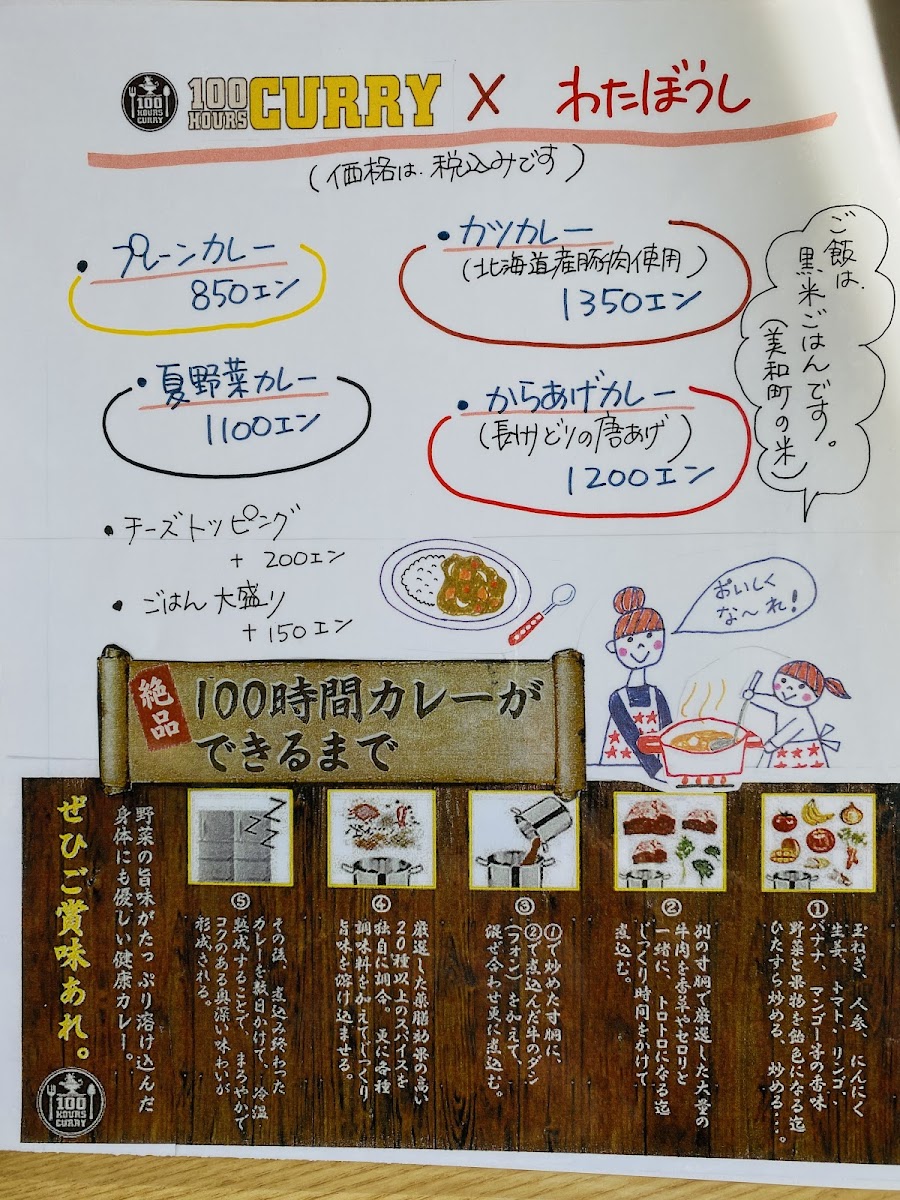 100 HOURS CURRY
100 HOURS CURRY × わたぼうし
(価格は、税込みです)
・プレーンカレー
850エン
・カツカレー
(北海道産豚肉使用)
1350エン
・夏野菜カレー
1100エン
・からあげカレー
(長州どりの唐あげ)
1200エン
ご飯は、
黒米ごはんです。
(美和町の米)
・チーズトッピング
+ 200エン
・ごはん大盛り
+ 150エン
おいしく
な〜れ!
絶品
100時間カレーが
できるまで
①
玉ねぎ、人参、にんにく
生姜、トマト、リンゴ、
バナナ、マンゴー等の香味
野菜と果物を飴色になる迄
ひたすら炒める、炒める…。
②
別の寸胴で厳選した大量の
牛肉を香草やセロリと
一緒に、トロトロになる迄
じっくり時間をかけて
煮込む。
③
①で炒めた寸胴に、
②で煮込んだ牛のブイヨン
(フォン)を加えて、
混ぜ合わせ更に煮込む。
④
厳選した薬膳効果の高い
20種以上のスパイスを
独自に調合。更に各種
調味料を加えてじっくり
旨味を溶け込ませる。
⑤
ZZZ
その後、煮込み終わった
カレーを数日かけて、冷温
熟成することで、まろやかで
コクのある奥深い味わいが
形成される。
野菜の旨味がたっぷり溶け込んだ
身体にも優しい健康カレー。
ぜひご賞味あれ。
100 HOURS CURRY